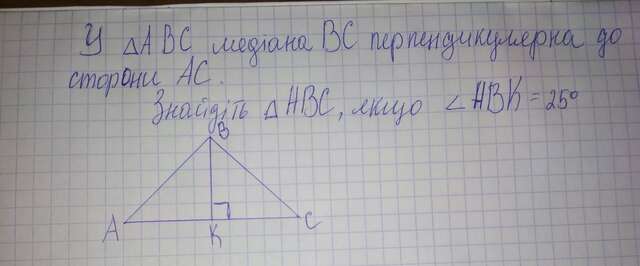 У △ABC медіана BC перпендикулярна до
сторони AC.
Знайдіть △ABC, якщо ∠ABK = 25°
B
A
K
C